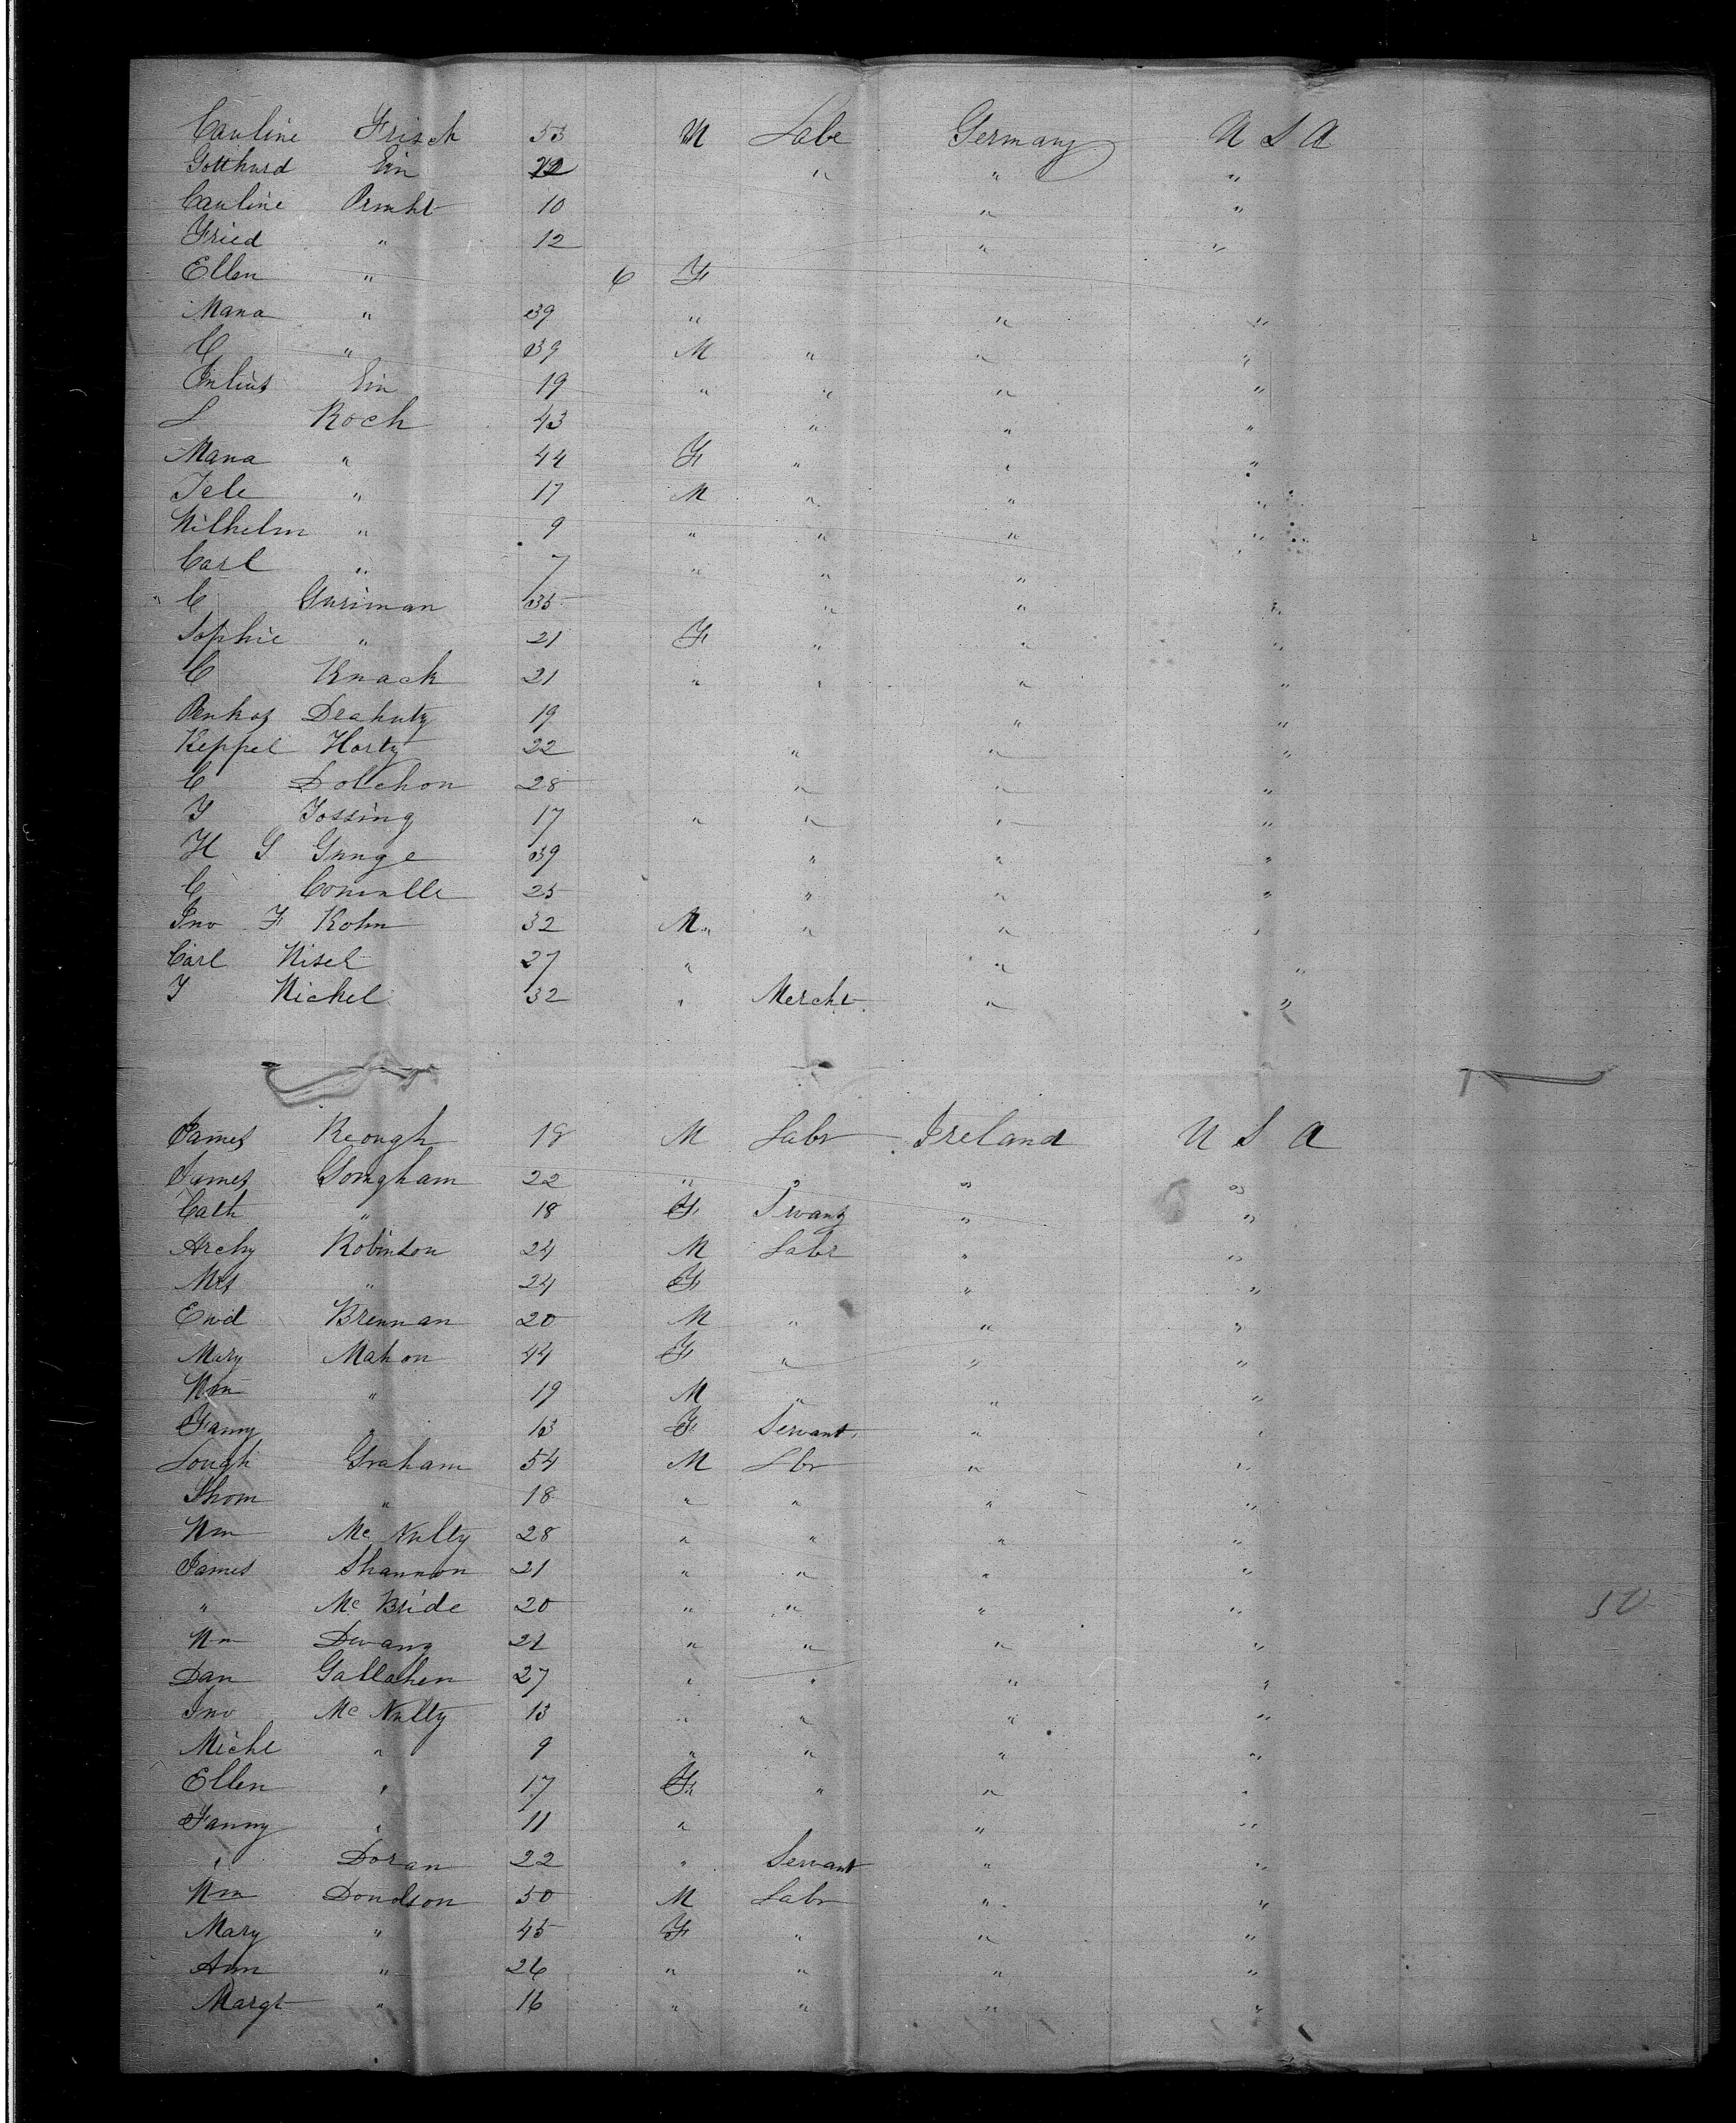 Cauline Frisch 53 M Labe Germany U S A
Gotthard Ein 22 " " "
Cauline Prmht 10 " "
Fried " 12 " "
Ellen " 6 F
Mana " 39 " " "
C " 39 M " " "
Julius Ein 19 " " " "
L Koch 43 " " "
Mana " 44 F " " "
Tele " 17 M " " "
Wilhelm " 9 " " " "
Carl " 7 " " "
C Gariman 35 " " "
Sophie " 21 F " " "
C Knack 21 " " " "
Deahuty 19 " "
Keppel Harty 22 " " "
C Dolchon 28 " " "
J Jossing 17 " " " "
H G Gunge 39 " " "
C 25 " " "
Jno F Kohn 32 M " " "
Carl Nisel 27 " " "
J Nickel 32 " Mercht " "
James Keough 18 M Labr Ireland U S A
James Gomgham 22 " " " "
Cath " 18 F " "
Archy Robinson 24 M Labr " "
Mrs " 24 F " "
Ewd Brennan 20 M " " "
Mary Mahon 44 F " " "
Wm " 19 M " " "
Fanny " 13 F Servant " "
Lough Graham 54 M Lbr " "
Thom " 18 " " " "
Wm Mc Nulty 28 " " " "
James Shannon 21 " " " "
" Mc Bride 20 " " " " 50
Wm Devany 21 " " " "
Dan Gallahen 27 " " " "
Jno Mc Nulty 13 " " " "
Michl " 9 " " " "
Ellen " 17 F " " "
Fanny " 11 " " "
" Doran 22 " Servant " "
Wm Donolson 50 M Labr " "
Mary " 45 F " " "
Ann " 26 " " " "
Margt " 16 " " " "